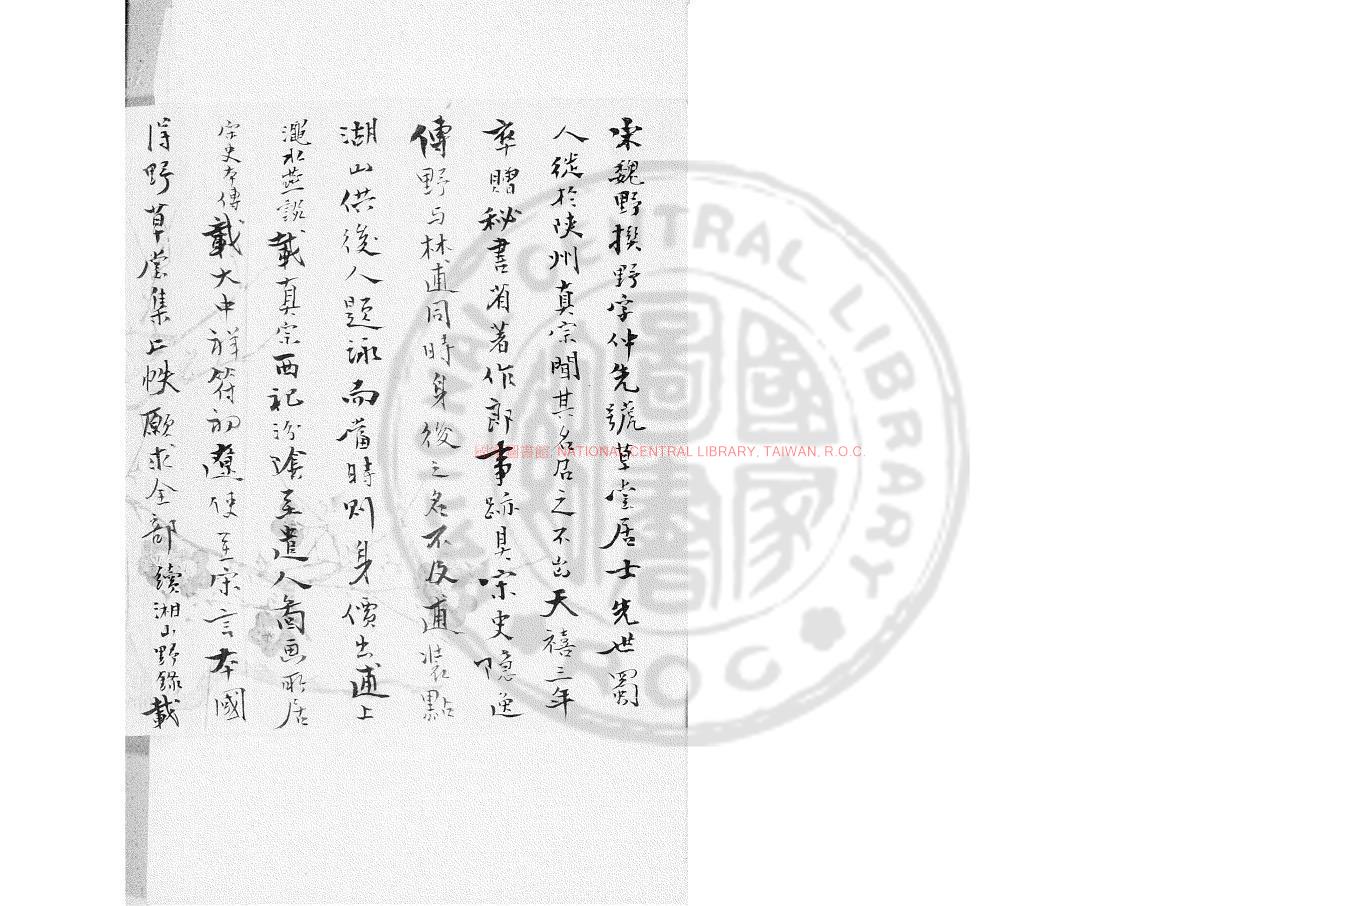 宋魏野撰野字仲先號草堂居士先世蜀
人徙於陝州真宗聞其名召之不出天禧三年
卒贈秘書省著作郎事跡具宋史隱逸
傳野与林逋同時身後之名不及逋裝點
湖山供後人題詠而當時則身價出逋上
澠水燕談載真宗西祀汾陰至遣人啚画所居
宋史本傳載大中祥符初遼使至宋言本國
得野草堂集上帙願求全部續湘山野錄載
國家圖書館, NATIONAL CENTRAL LIBRARY, TAIWAN, R.O.C.
NATIONAL CENTRAL LIBRARY
ROC